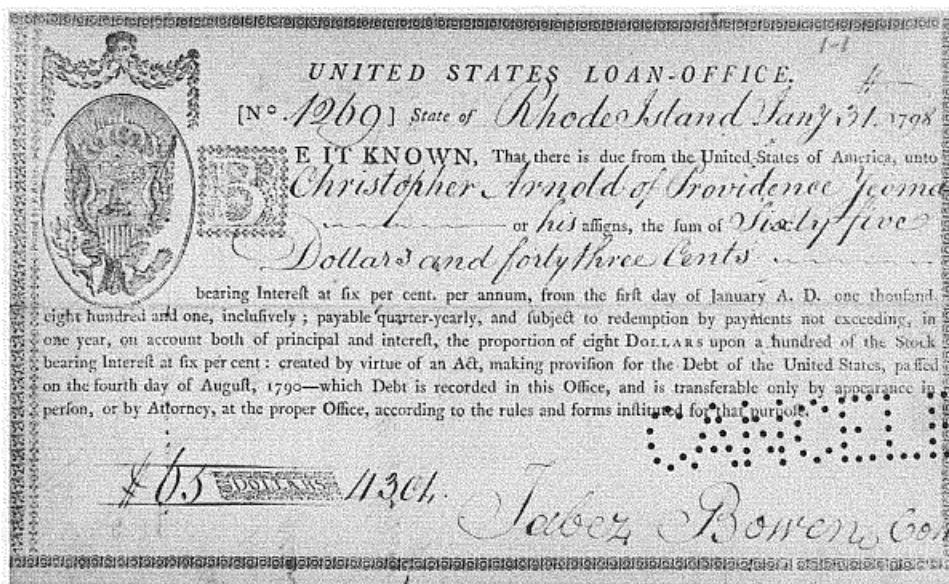 1-1
UNITED STATES LOAN-OFFICE.
[No. 1269] State of Rhode Island Jany 31. 1798
BE IT KNOWN, That there is due from the United States of America, unto
Christopher Arnold of Providence Yeoma
or his aſſigns, the ſum of Sixty five
Dollars and forty three Cents
bearing Intereſt at ſix per cent. per annum, from the firſt day of January A. D. one thouſand
eight hundred and one, incluſively; payable quarter-yearly, and ſubject to redemption by payments not exceeding, in
one year, on account both of principal and intereſt, the proportion of eight DOLLARS upon a hundred of the Stock
bearing Intereſt at ſix per cent: created by virtue of an Act, making proviſion for the Debt of the United States, paſſed
on the fourth day of Auguſt, 1790—which Debt is recorded in this Office, and is transferable only by appearance in
perſon, or by Attorney, at the proper Office, according to the rules and forms inſtituted for that purpoſe.
CANCELL
$65 DOLLARS 43 Cts.
Jabez Bowen, Com